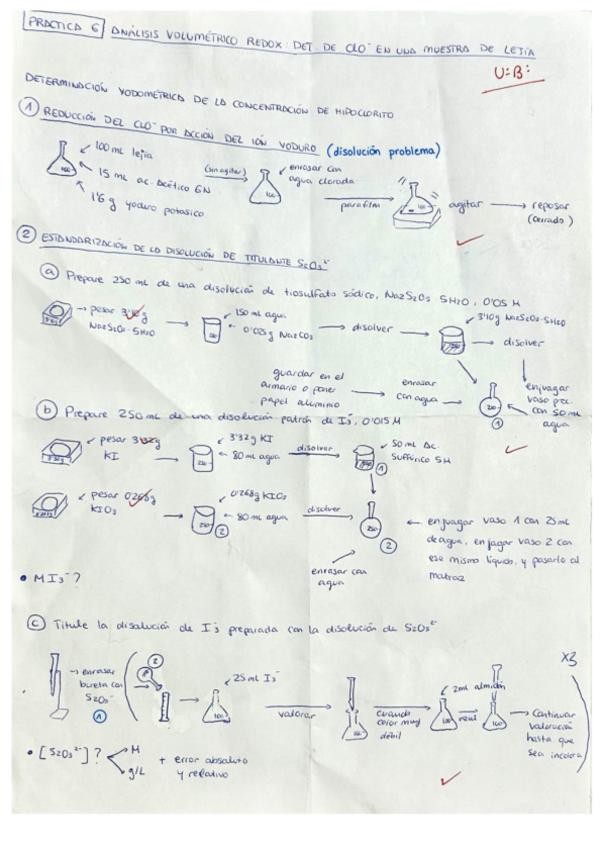 PRACTICA 6 ANÁLISIS VOLUMÉTRICO REDOX: DET. DE ClO⁻ EN UNA MUESTRA DE LEJÍA
DETERMINACIÓN YODOMÉTRICA DE LA CONCENTRACIÓN DE HIPOCLORITO
① REDUCCIÓN DEL ClO⁻ POR ACCIÓN DEL IÓN YODURO (disolución problema)
100 mL lejía
15 mL ac. Acético 6N
1'6 g yoduro potasico
(sin agitar)
100
enrasar con
agua clorada
parafilm
100
agitar → reposar
(cerrado)
② ESTANDARIZACIÓN DE LA DISOLUCIÓN DE TITULANTE S2O3²⁻
ⓐ Prepare 250 mL de una disolución de tiosulfato sódico, Na2S2O3 5H2O, 0'05 M
→ pesar 3'10 g
Na2S2O3·5H2O
150 mL agua
0'025 g Na2CO3
disolver
3'10g Na2S2O3·5H2O
disolver
enjuagar
vaso prec.
con 50 mL
agua
250
①
enrasar
con agua
guardar en el
armario o poner
papel aluminio
ⓑ Prepare 250 mL de una disolución patrón de I3⁻, 0'015 M
pesar 3'32g
KI
3'32 g KI
80 mL agua
disolver
50 mL Ac.
Sulfúrico 5M
①
pesar 0'268g
KIO3
0'268g KIO3
80 mL agua
②
disolver
250
②
enrasar con
agua
← enjuagar vaso 1 con 25 mL
de agua, enjagar vaso 2 con
ese mismo líquido, y pasarlo al
matraz
• M I3⁻ ?
ⓒ Titule la disolución de I3⁻ preparada con la disolución de S2O3²⁻
x3
→ enrasar
bureta con
S2O3²⁻
①
②
25 mL I3⁻
100
valorar
cuando
color muy
débil
2mL almidón
100
azul
100
→ Continuar
valoración
hasta que
sea incolora
• [S2O3²⁻] ?
M
g/L
+ error absoluto
y relativo